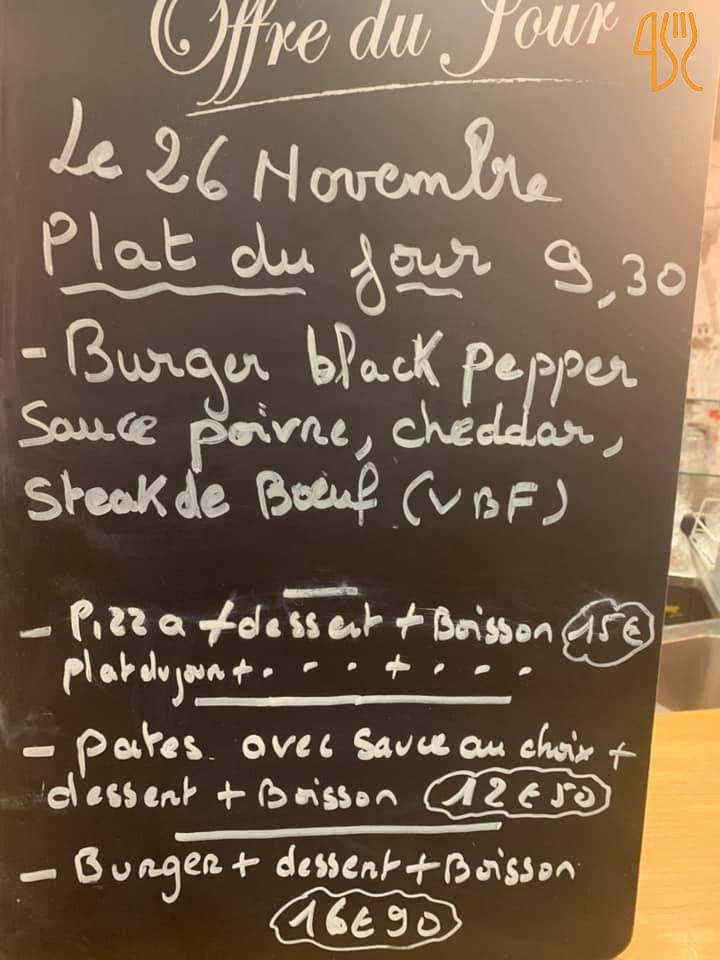 Offre du Jour
Le 26 Novembre
Plat du jour 9,30
- Burger black pepper
Sauce poivre, cheddar,
Steak de Boeuf (VBF)
- Pizza + dessert + Boisson 15€
plat du jour + . - - - + - - -
- pates. avec sauce au choix +
dessert + Boisson 12€50
- Burger + dessert + Boisson
16€90